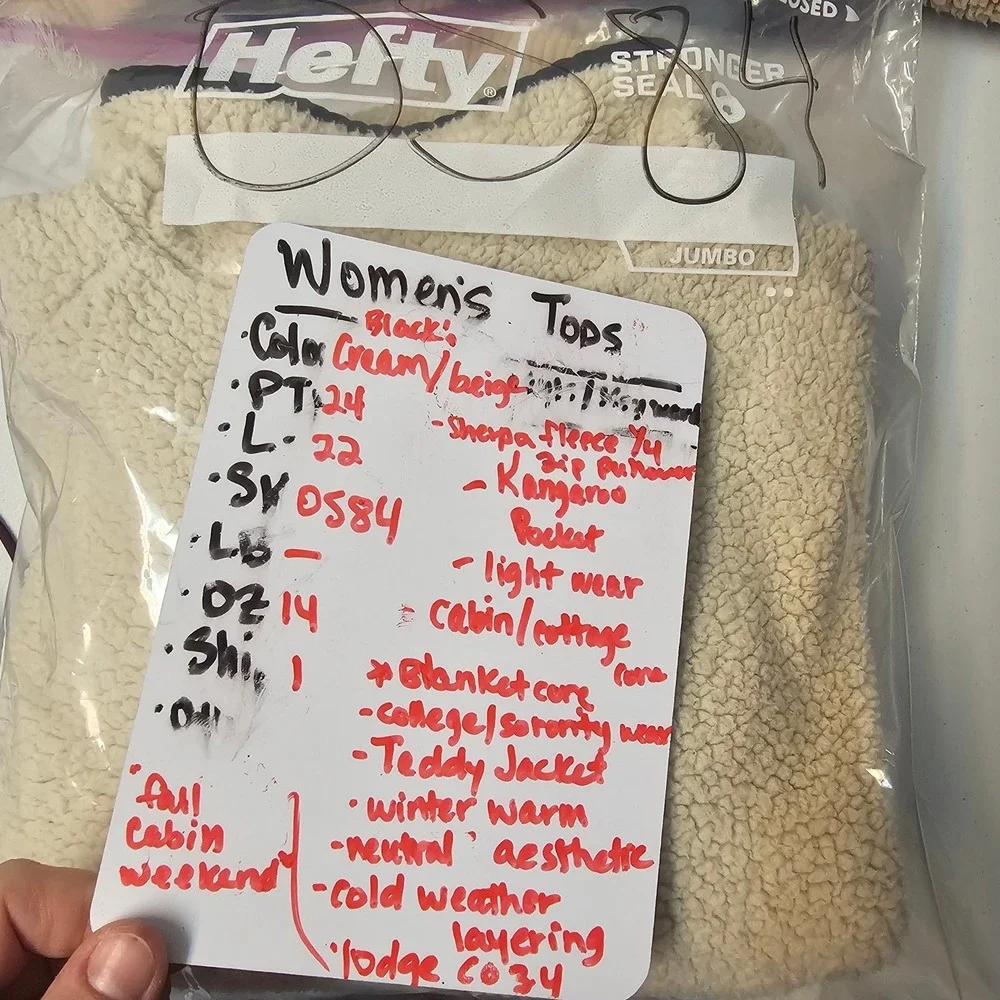 0584
Hefty®
STRONGER
SEAL
JUMBO
Women's Tops
Black:
Color Cream/beige
• PT 24
• L. 22
• SK 0584
• Lb —
• OZ 14
• Shi 1
- Sherpa fleece 1/4
zip pullover
- Kangaroo
Pocket
- light wear
Cabin/cottage
core
* Blanket core
- college/sorority wear
- Teddy Jacket
• winter warm
- neutral aesthetic
- cold weather
layering
• lodge cozy
• fall
cabin
weekend